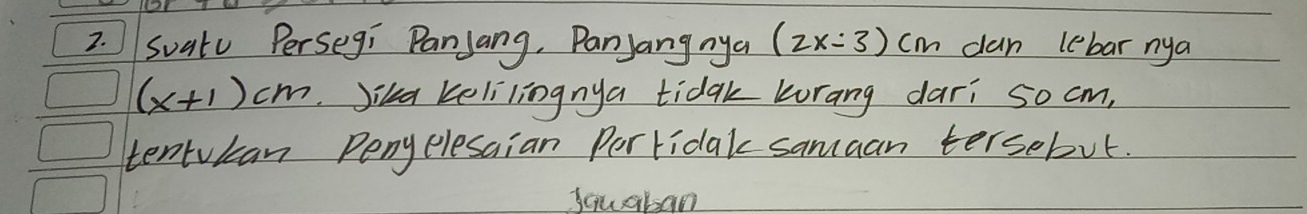 2. Suatu Persegi Panjang. Panjangnya (2x-3) cm dan lebar nya
(x+1) cm. Jika kelilingnya tidak kurang dari 50 cm,
tentukan Penyelesaian Pertidak samaan tersebut.
Jawaban